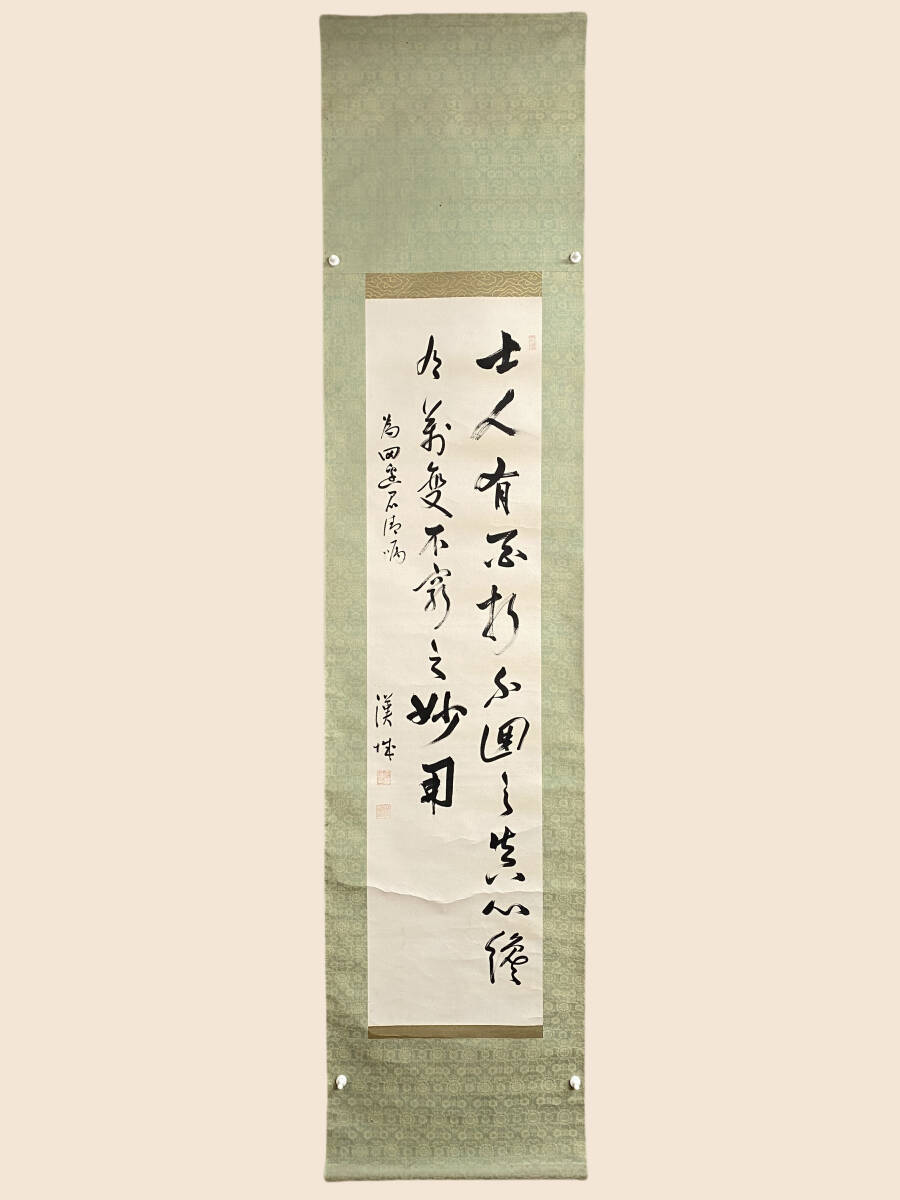 士人有百折不回之真心纔
有萬變不窮之妙用
為田邊君清嘱
漢城